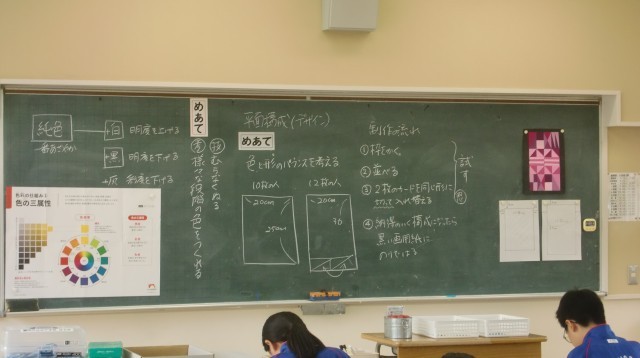 純色
一番あざやか
+白 明度を上げる
+黒 明度を下げる
+灰 彩度を下げる
色の三属性
めあて
技 むらなくぬる
様々な段階の色をつくれる
平面構成(デザイン)
めあて
色と形のバランスを考える
10枚の人
20cm
25cm
12枚の人
20cm
36
制作の流れ
① 枠をかく。
② 並べる
③ 2枚のカードを同じ形に
切って入れ替える
④ 納得のいく構成になったら
黒い画用紙に
のりではる
試す